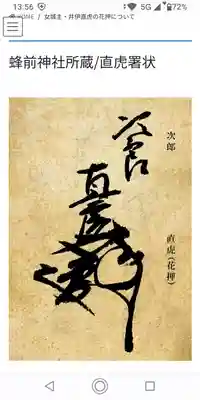 13:56
5G 72%
HOME / 女城主・井伊直虎の花押について
蜂前神社所蔵/直虎署状
次郎
直虎
次郎
直虎(花押)